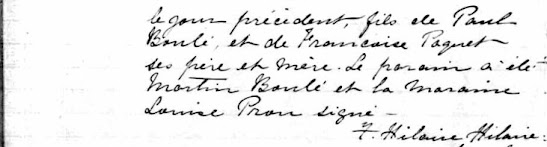 le jour précédent, fils de Paul
Boulé, et de Francoise Paquet
ses père et mère. Le parain a été
Martin Boulé et la Maraine
Louise Prou signé -
F. Hilaire Hilaire.